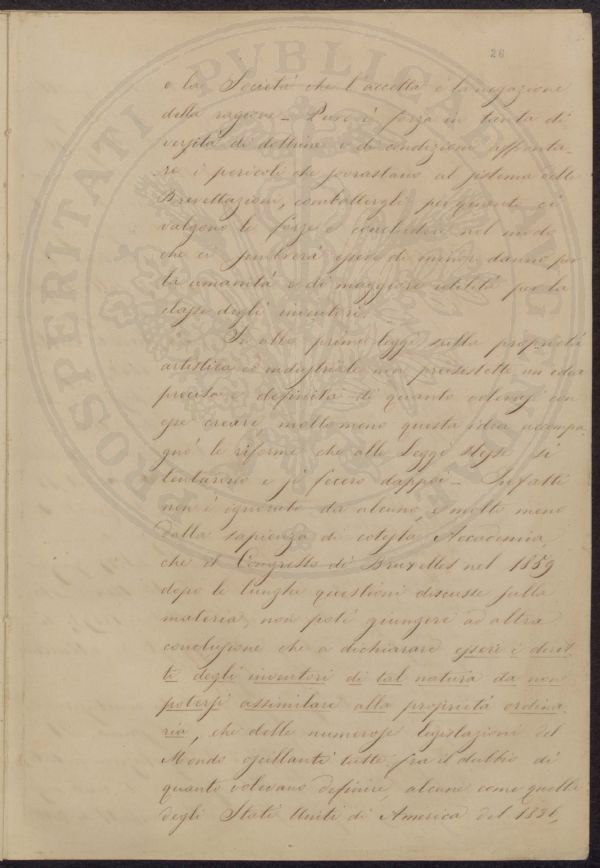 26
e la Società che l'accetta è la negazione
della ragione – Pure è forza in tanta di
versità di dottrine e di condizioni affronta-
re i pericoli che sovrastano al sistema delle
Brevettazioni, combattergli per quanto ci
valgono le forze e concludere nel modo
che ci sembrerà essere di minor danno per
la umanità e di maggiore utilità per la
classe degli inventori.
In alle prime leggi sulla proprietà
artistica ed industriale non preesistette un idea
precisa e definita di quanto volevasi con
esse creare molto meno questa idea accompa
gnò le riforme che alle Leggi stesse si
tentarono e si fecero dappoi – Infatti
non è ignorato da alcuno, e molto meno
dalla sapienza di cotesta Accademia,
che il Congresso di Bruxelles nel 1859
dopo le lunghe questioni discusse sulla
materia, non poté giungere ad altra
conclusione che a dichiarare essere i dirit-
ti degli inventori di tal natura da non
potersi assimilare alla proprietà ordina-
ria, che delle numerose legislazioni del
Mondo oscillanti tutte fra il dubbio di
quanto volevano definire, alcune come quella
degli Stati Uniti di America del 1836,
PROSPERITATI PVBLICAE AVGENDAE